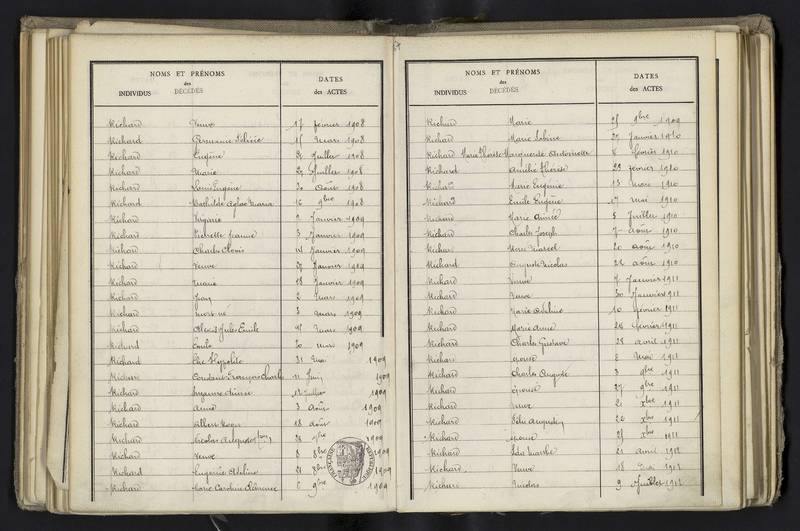 NOMS ET PRÉNOMS
des
INDIVIDUS DÉCÉDÉS
DATES
des ACTES
Richard Veuve 17 février 1908
Richard Germaine 15 mars 1908
Richard Eugène Juillet 1908
Richard Marie 29 Juillet 1908
Richard Louis Eugène 20 Août 1908
Richard Mathilde Aglaé Maria 16 9bre 1908
Richard Virginie 2 Janvier 1909
Richard Pierrette Jeanne 3 Janvier 1909
Richard Charles Clovis 14 Janvier 1909
Richard Veuve 27 Janvier 1909
Richard Marie 18 Janvier 1909
Richard 2 mars 1909
Richard Mort-né 3 mars 1909
Richard Alexis Jules Emile mars 1909
Richard Emile 20 mars 1909
Richard Elie Hyppolite 21 mai 1909
Richard Constant François Charles 11 Juin 1909
Richard Suzanne Aimée 13 Juillet 1909
Richard Aimé 3 Août 1909
Richard Albert 18 août 1909
Richard Nicolas Auguste 1909
Richard Veuve 8 8bre 1909
Richard Eugénie Adeline 21 8bre 1909
Richard Marie Caroline 6 9bre 1909
NOMS ET PRÉNOMS
des
INDIVIDUS DÉCÉDÉS
DATES
des ACTES
Richard Marie 25 9bre 1909
Richard Marie Sabine 20 Janvier 1910
Richard Marie Thérèse Marguerite Antoinette 8 février 1910
Richard Amélie Thérèse 22 février 1910
Richard Marie Eugénie 13 mars 1910
Richard Emile Eugène 17 mai 1910
Richard Marie Aimée 5 Juillet 1910
Richard Charles Joseph 7 août 1910
Richard Marcel 20 août 1910
Richard Auguste Nicolas 22 août 1910
Richard Veuve 7 Janvier 1911
Richard Veuve 30 Janvier 1911
Richard Marie Adeline 10 février 1911
Richard Marie Anne 26 février 1911
Richard Charles Gustave 28 avril 1911
Richard épouse 8 Mai 1911
Richard Charles Auguste 3 9bre 1911
Richard épouse 27 9bre 1911
Richard Veuve 2 Xbre 1911
Richard Augustin 22 Xbre 1911
Richard épouse 25 Xbre 1911
Richard 21 avril 1912
Richard Veuve 18 mai 1912
Richard Nicolas 9 Juillet 1912